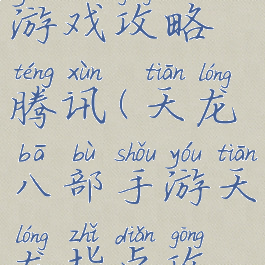 游戏攻略
téng xùn tiān lóng
腾讯(天龙
bā bù shǒu yóu tiān
八部手游天
lóng zhǐ diǎn gōng